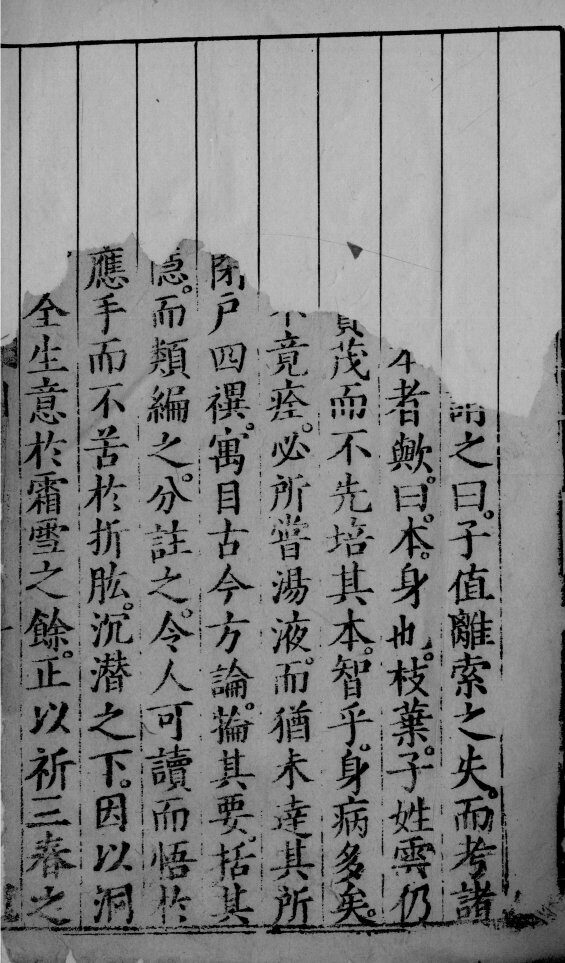 之曰。子值離索之失。而考諸
者歟。曰。本。身也。枝葉。子姓雲仍
茂而不先培其本。智乎。身病多矣。
不竟痊。必所嘗湯液。而猶未達其所
閉戶四禩。寓目古今方論。掄其要。括其
隐。而類編之。分註之。令人可讀而悟於
應手而不苦於折肱。沉潜之下。因以洞
全生意於霜雪之餘。正以祈三春之